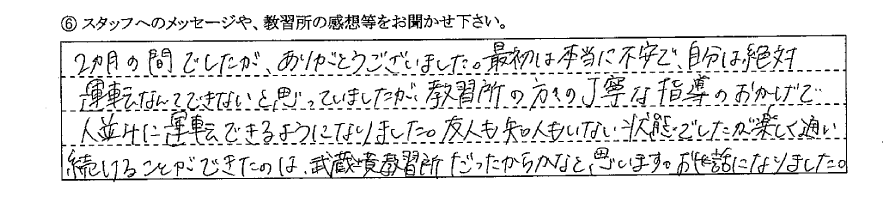 ⑥ スタッフへのメッセージや、教習所の感想等をお聞かせ下さい。
2ヵ月の間でしたが、ありがとうございました。最初は本当に不安で、自分は絶対
運転なんてできないと思っていましたが、教習所の方々の丁寧な指導のおかげで
人並みに運転できるようになりました。友人も知人もいない状態でしたが楽しく通い
続けることができたのは、武蔵境教習所だったからかなと思います。お世話になりました。